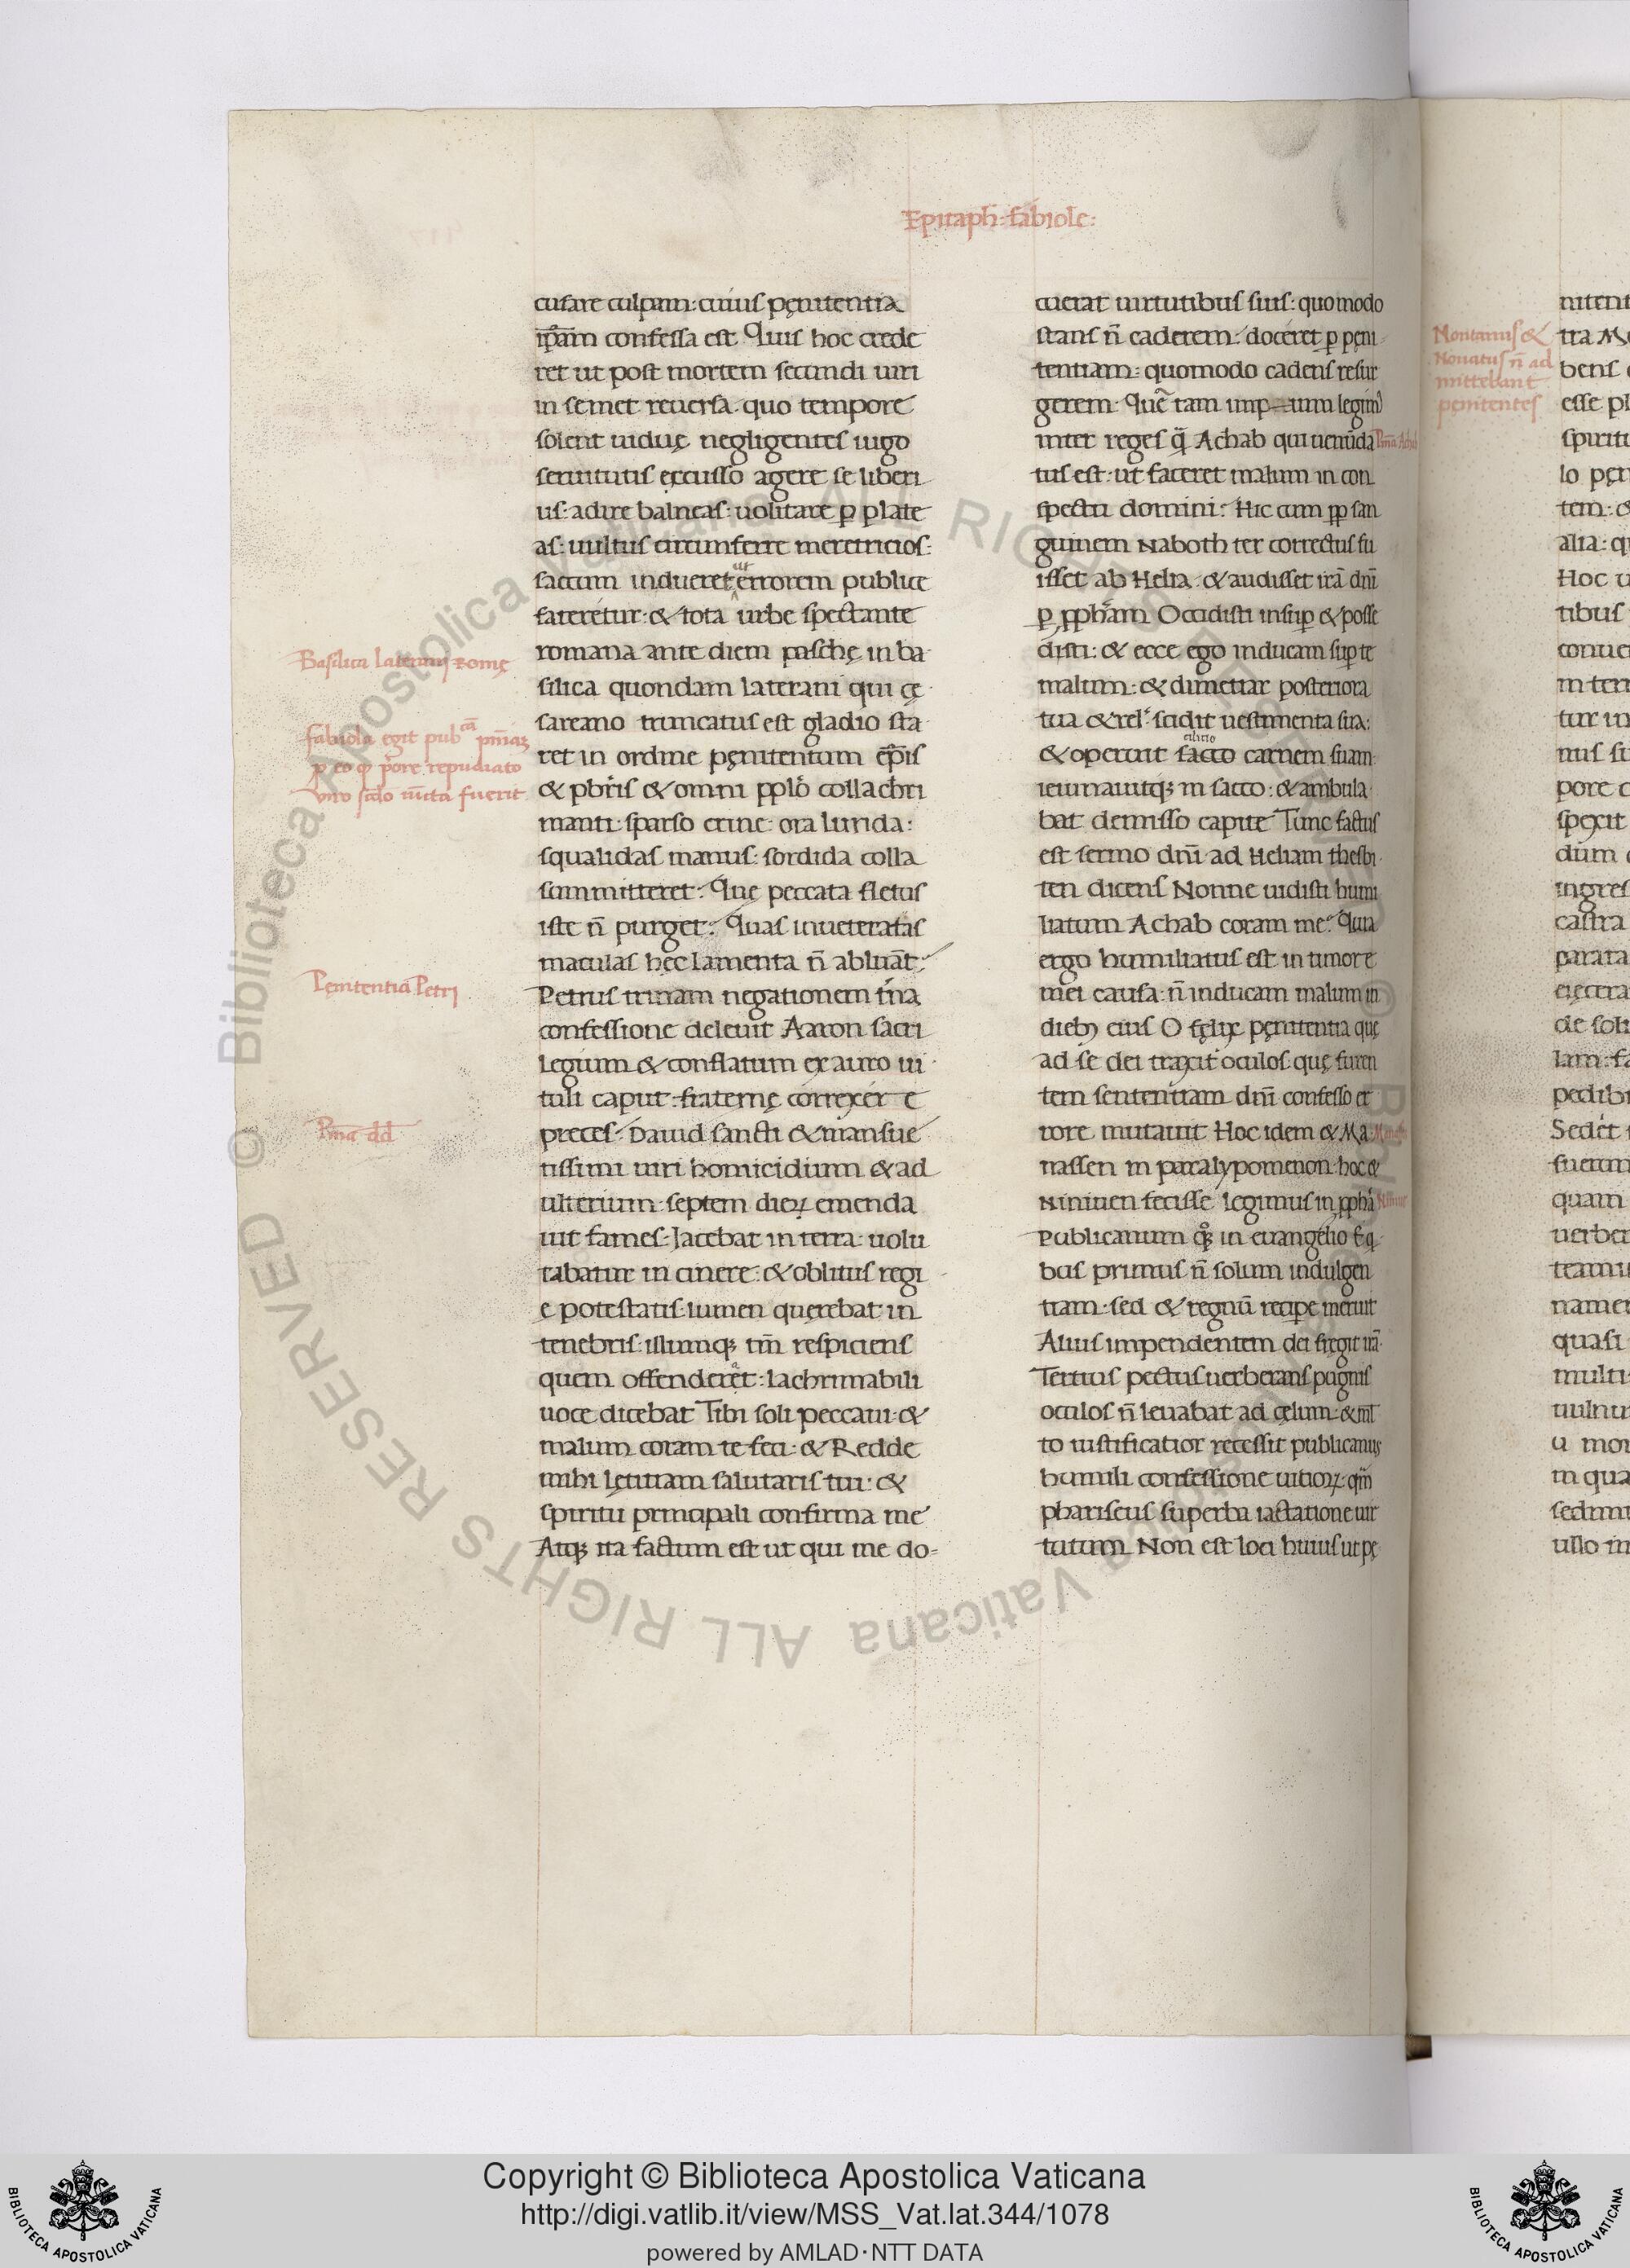 Epitaph: fabiole:
cusare culpam: cuius pęnitentia
ip̄am confessa est. Quis hoc crede
ret ut post mortem secundi uiri
in semet reuersa. quo tempore
solent uiduę negligentes iugo
seruitutis excusso agere se liberi
us: adire balneas: uolitare ꝑ plate
as: uultus circumferre meretricios:
saccum indueret ut errorem publice
fateretur: & tota urbe spectante
romana ante diem paschę in ba
silica quondam laterani qui cę
sareano truncatus est gladio sta
ret in ordine pęnitentium ep̄is
& pbr̄is & omni pplo collachri
manti: sparso crine: ora lurida:
squalidas manus: sordida colla
summitteret: Quę peccata fletus
iste n̄ purget: Quas inueteratas
maculas hęc lamenta n̄ abluāt:
Petrus trinam negationem t̄na
confessione deleuit Aaron sacri
legium & conflatum ex auro ui
tuli caput: fraternę correxer̄e
preces: Dauid sancti & mansue
tissimi uiri homicidium & ad
ulterium: septem dieꝝ emenda
uit fames: Iacebat in terra: uolu
tabatur in cinere: & oblitus regi
e potestatis: lumen querebat in
tenebris: illumqꝫ tm̄ respiciens
quem offenderet: lachrimabili
uoce dicebat Tibi soli peccaui: &
malum coram te feci: & Redde
mihi lętitiam salutaris tui: &
spiritu principali confirma me
Atqꝫ ita factum est ut qui me do=
cuerat uirtutibus suis: quomodo
stans n̄ caderem: doceret ꝑ pęni
tentiam: quomodo cadens resur
gerem: Quē tam imp um legim
inter reges q̄ Achab qui uenūda
tus est: ut faceret malum in con
spectu domini: Hic cum ꝓp san
guinem Naboth ter correctus fu
isset ab Helia: & audisset irā dn̄i
ꝑ ꝓpham Occidisti insuꝑ & posse
disti: & ecce ego inducam suꝑ te
malum: & dimetiar posteriora
tua & rel: scidit uestimenta sua:
cilitio
& operuit sacco carnem suam:
ieiunauitqꝫ in sacco: & ambula
bat demisso capite Tunc factus
est sermo dn̄i ad Heliam thesbi
ten dicens Nonne uidisti humi
liatum Achab coram me: Quia
ergo humiliatus est in timore
mei causa: n̄ inducam malum in
dieb; eius O fęlix pęnitentia quę
ad se dei traxit oculos quę furen
tem sententiam dn̄i confesso er
rore mutauit Hoc idem & Ma
nassen in paralypomenon: hoc &
Niniuen fecisse legimus in ꝓpha
Publicanum qꝫ in euangelio E q
bus primus n̄ solum indulgen
tiam: sed & regnū reciꝑe meruit
Alius impendentem dei fregit irā
Tertius pectus uerberans pugnis
oculos n̄ leuabat ad cęlum: & ml̄
to iustificatior recessit publicanus
humili confessione uitioꝝ: qm̄
phariseus superba iactatione uir
tutum Non est loci huius ut pę
Basilica laterani Romę
fabiola egit pubcā pn̄iaꝫ
ꝑ eo ꝙ priore repudiato
viro scdo iūcta fuerit
Pęnitentia Petri
Pn̄ia dd
Pn̄ia Achab
Montanus &
Nouatus n̄ ad
mittebant
pęnitentes
Copyright © Biblioteca Apostolica Vaticana
http://digi.vatlib.it/view/MSS_Vat.lat.344/1078
powered by AMLAD·NTT DATA
BIBLIOTECA APOSTOLICA VATICANA
BIBLIOTECA APOSTOLICA VATICANA
© Biblioteca Apostolica Vaticana ALL RIGHTS RESERVED